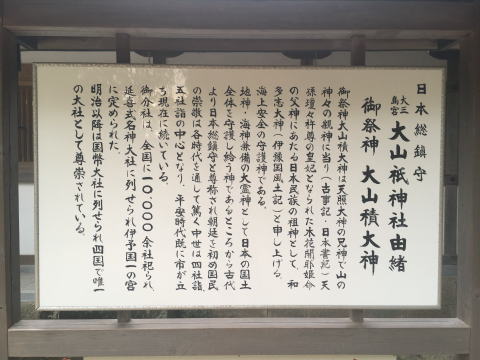 日本総鎮守
大三島宮 大山祇神社由緒
御祭神 大山積大神
御祭神大山積大神は天照大神の兄神で山の
神々の親神に当り(古事記・日本書紀)天
孫瓊々杵尊の皇妃となられた木花開耶姫命
の父神にあたる日本民族の祖神として、和
多志大神(伊豫国風土記)と申し上げる。
海上安全の守護神である。
地神・海神兼備の大霊神として日本の国土
全体を守護し給う神であるところから古代
より日本総鎮守と尊称され朝廷を初め国民
の崇敬は各時代を通して篤く中世は四社詣、
五社詣の中心となり、平安時代既に市が立
ち現在に続いている。
御分社は、全国に一〇,〇〇〇余社祀られ、
延喜式名神大社に列せられ伊予国一の宮
に定められた。
明治以降は国幣大社に列せられ四国で唯一
の大社として尊崇されている。